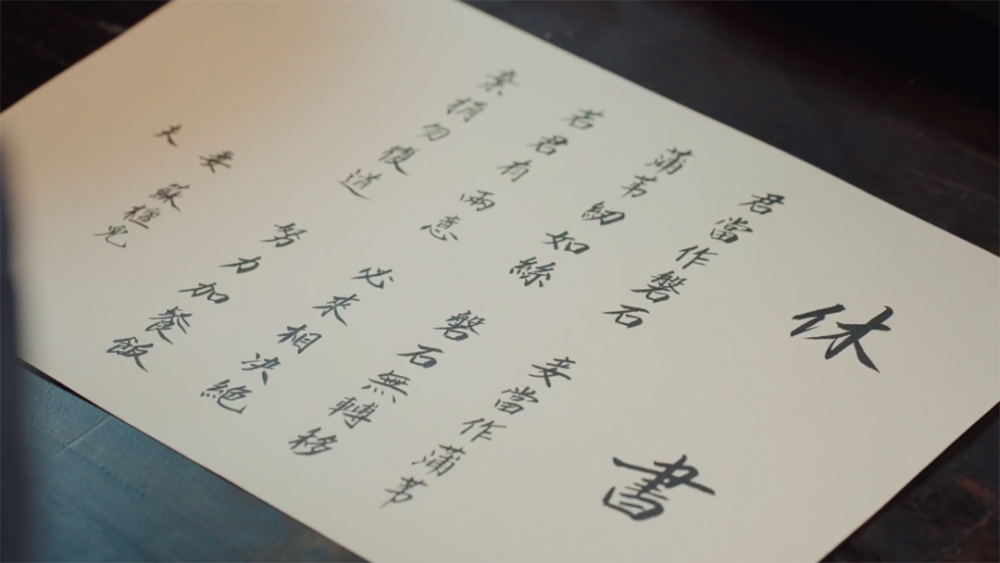 休書
君當作磐石 妾當作蒲苇
蒲苇紉如絲 磐石無轉移
若君有兩意 必來相決絕
棄捐勿復道 努力加餐飯
妻 蘇檀兒
夫